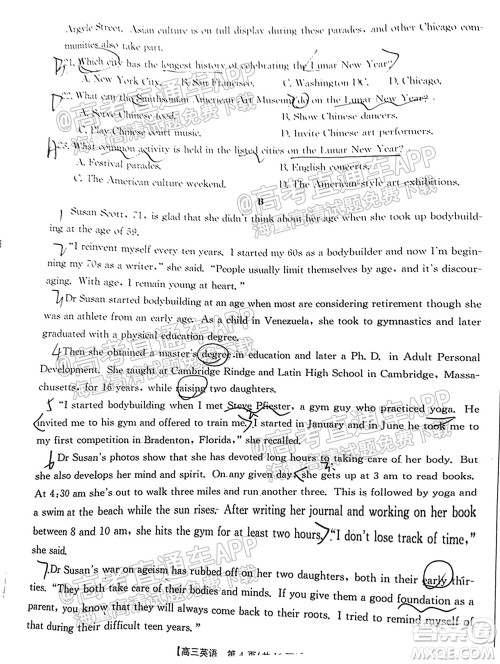 Argyle Street. Asian culture is on full display during these parades, and other Chicago com-
munities also take part.
21. Which city has the longest history of celebrating the Lunar New Year?
A. New York City. B. San Francisco. C. Washington DC. D. Chicago.
22. What can the Smithsonian American Art Museum do on the Lunar New Year?
A. Serve Chinese food. B. Show Chinese dancers.
C. Play Chinese court music. D. Invite Chinese art performers.
23. What common activity is held in the listed cities on the Lunar New Year?
A. Festival parades. B. English concerts.
C. The American culture weekend. D. The American-style art exhibitions.
B
1 Susan Scott, 71, is glad that she didn't think about her age when she took up bodybuild-
ing at the age of 59.
2 "I reinvent myself every ten years. I started my 60s as a bodybuilder and now I'm start-
ing my 70s as a writer," she said. "People usually limit themselves by age, and it's discour-
aging. With age, I remain young at heart."
3 Dr Susan started bodybuilding at an age when most are considering retirement though she
was an athlete from an early age. As a child in Venezuela, she took to gymnastics and later
graduated with a physical education degree.
4 Then she obtained a master's degree in education and later a Ph. D. in Adult Personal
Development. She taught at Cambridge Rindge and Latin High School in Cambridge, Massa-
chusetts, for 16 years, while raising two daughters.
5 "I started bodybuilding when I met Steve Pfiester, a gym guy who practiced yoga. He
invited me to his gym and offered to train me. I started in January and in June he took me to
my first competition in Bradenton, Florida," she recalled.
6 Dr Susan said that she has devoted long hours to taking care of her body. But she
also develops her mind and spirit. On any given day, she gets up at 3 am to read books.
At 4:30 am she's out to walk three miles and run another two. This is followed by yoga and
a swim at the beach while the sun rises. After writing her journal and working on her book
between 8 and 10 am, she hits the gym for at least two hours. "I don't lose track of time,"
she said.
7 Dr Susan's war on ageism has rubbed off on her two daughters, both in their early thir-
ties. "They both take care of their bodies and minds. If you have a good foundation as a
parent, you know that they will be okay in their lives. I have to tried to remind myself of
that during their difficult teen years," she said.
【高三英语 第4页
高考直通车APP
海量高清试题免费下载
答案圈